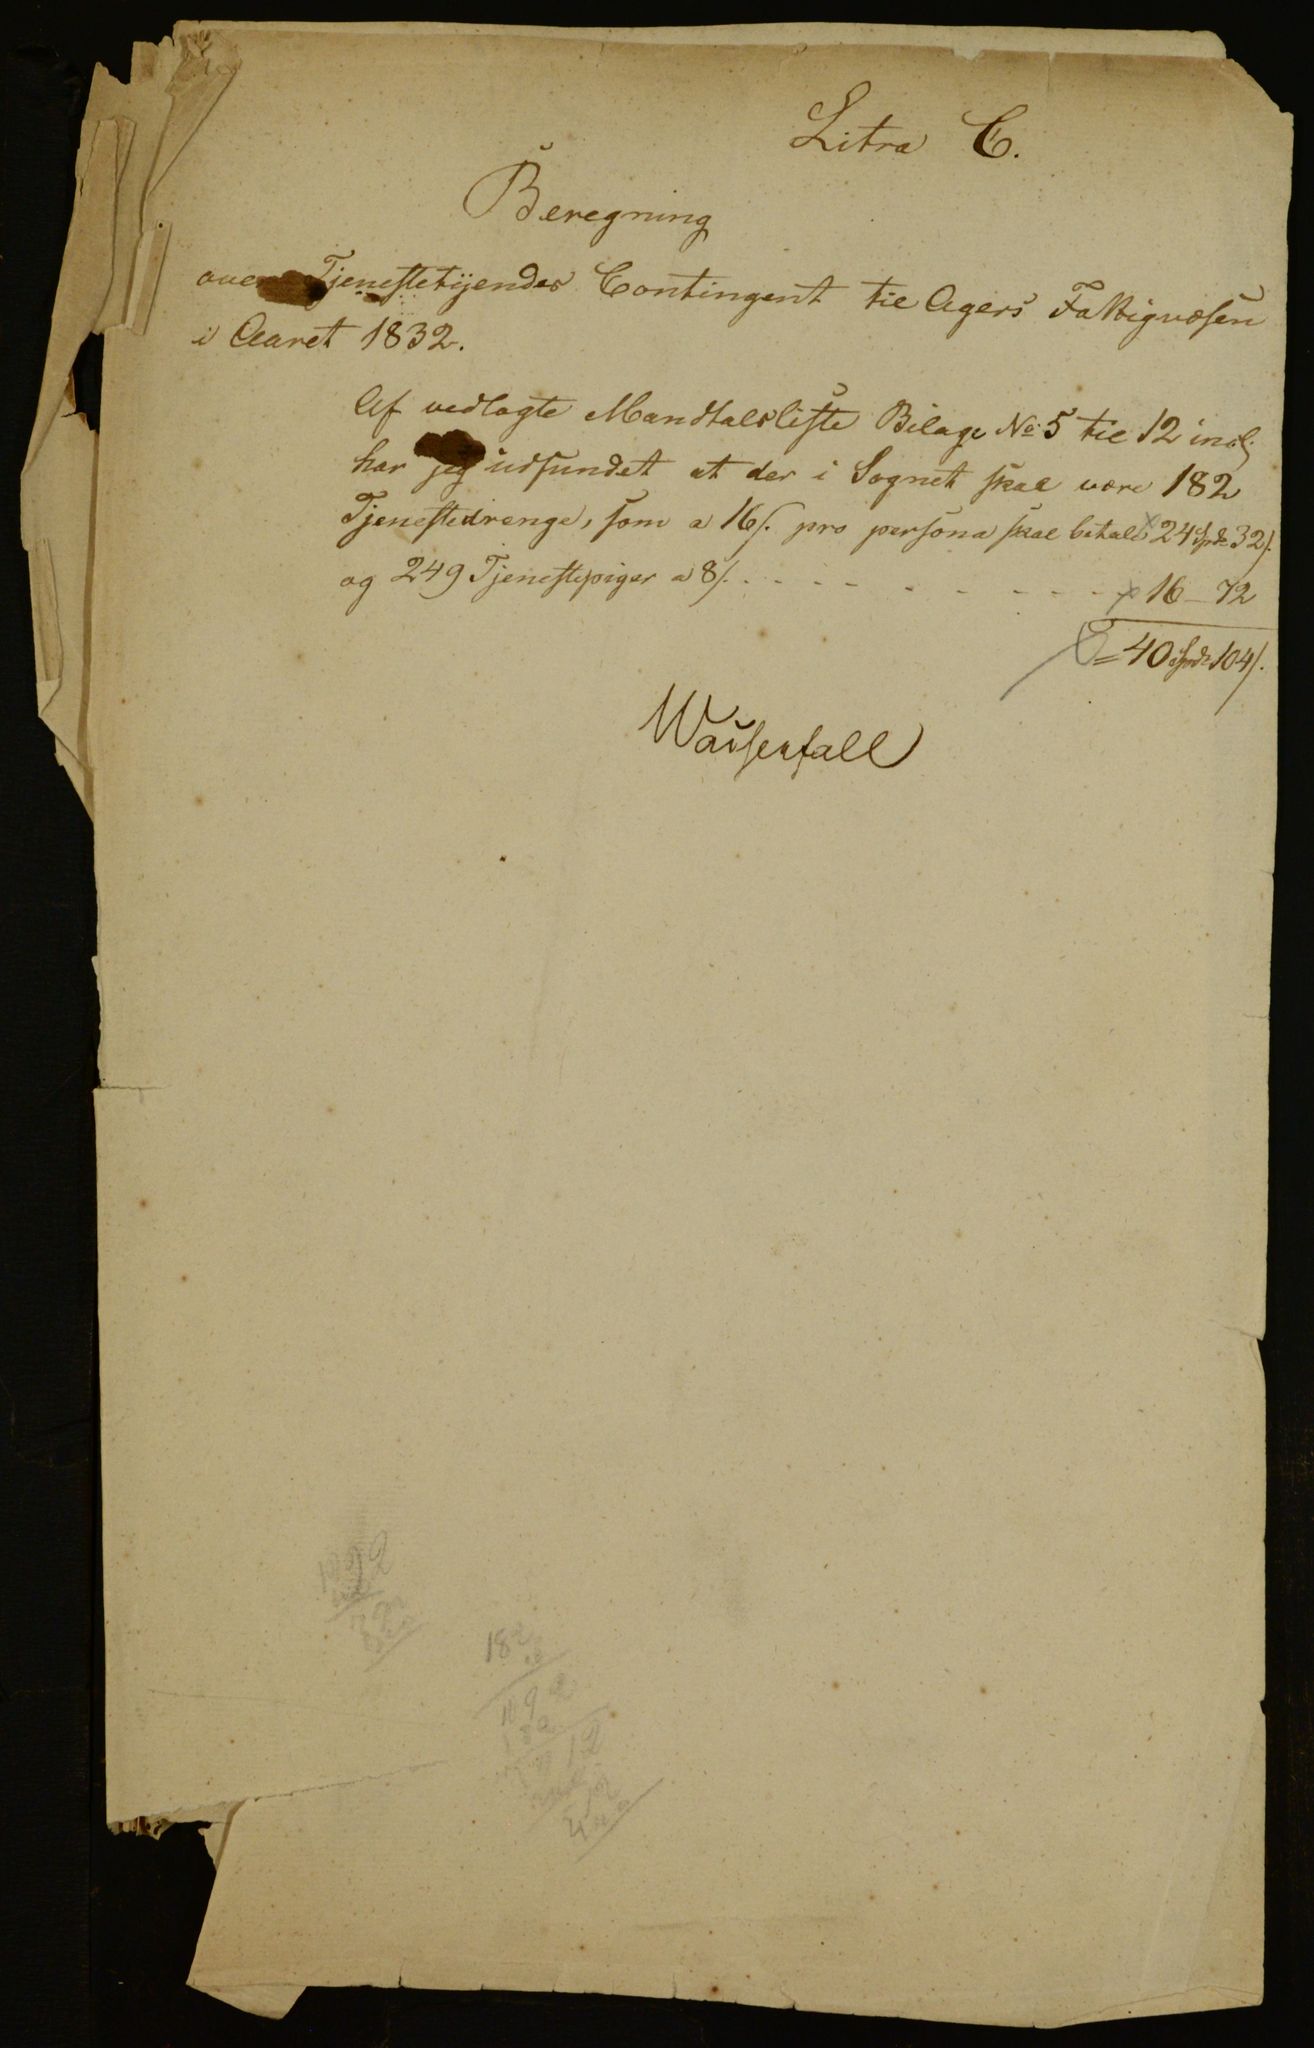 Litra C.
Beregning
over Tjenestetyendes Contingent til Agers Fattigvæsen
i Aaret 1832.
Af vedlagte Mandtalsliste Bilage No 5 til 12 incl;
har jeg udfundet at der i Sognet skal være 182
Tjenestedrenge, som a 16 s. pro persona skal betale 24 Spd 32 s.
og 249 Tjenestepiger a 8 s. - - - - - - - - - 16 - 72
= 40 Spd 104 s.
Waisenfall
182